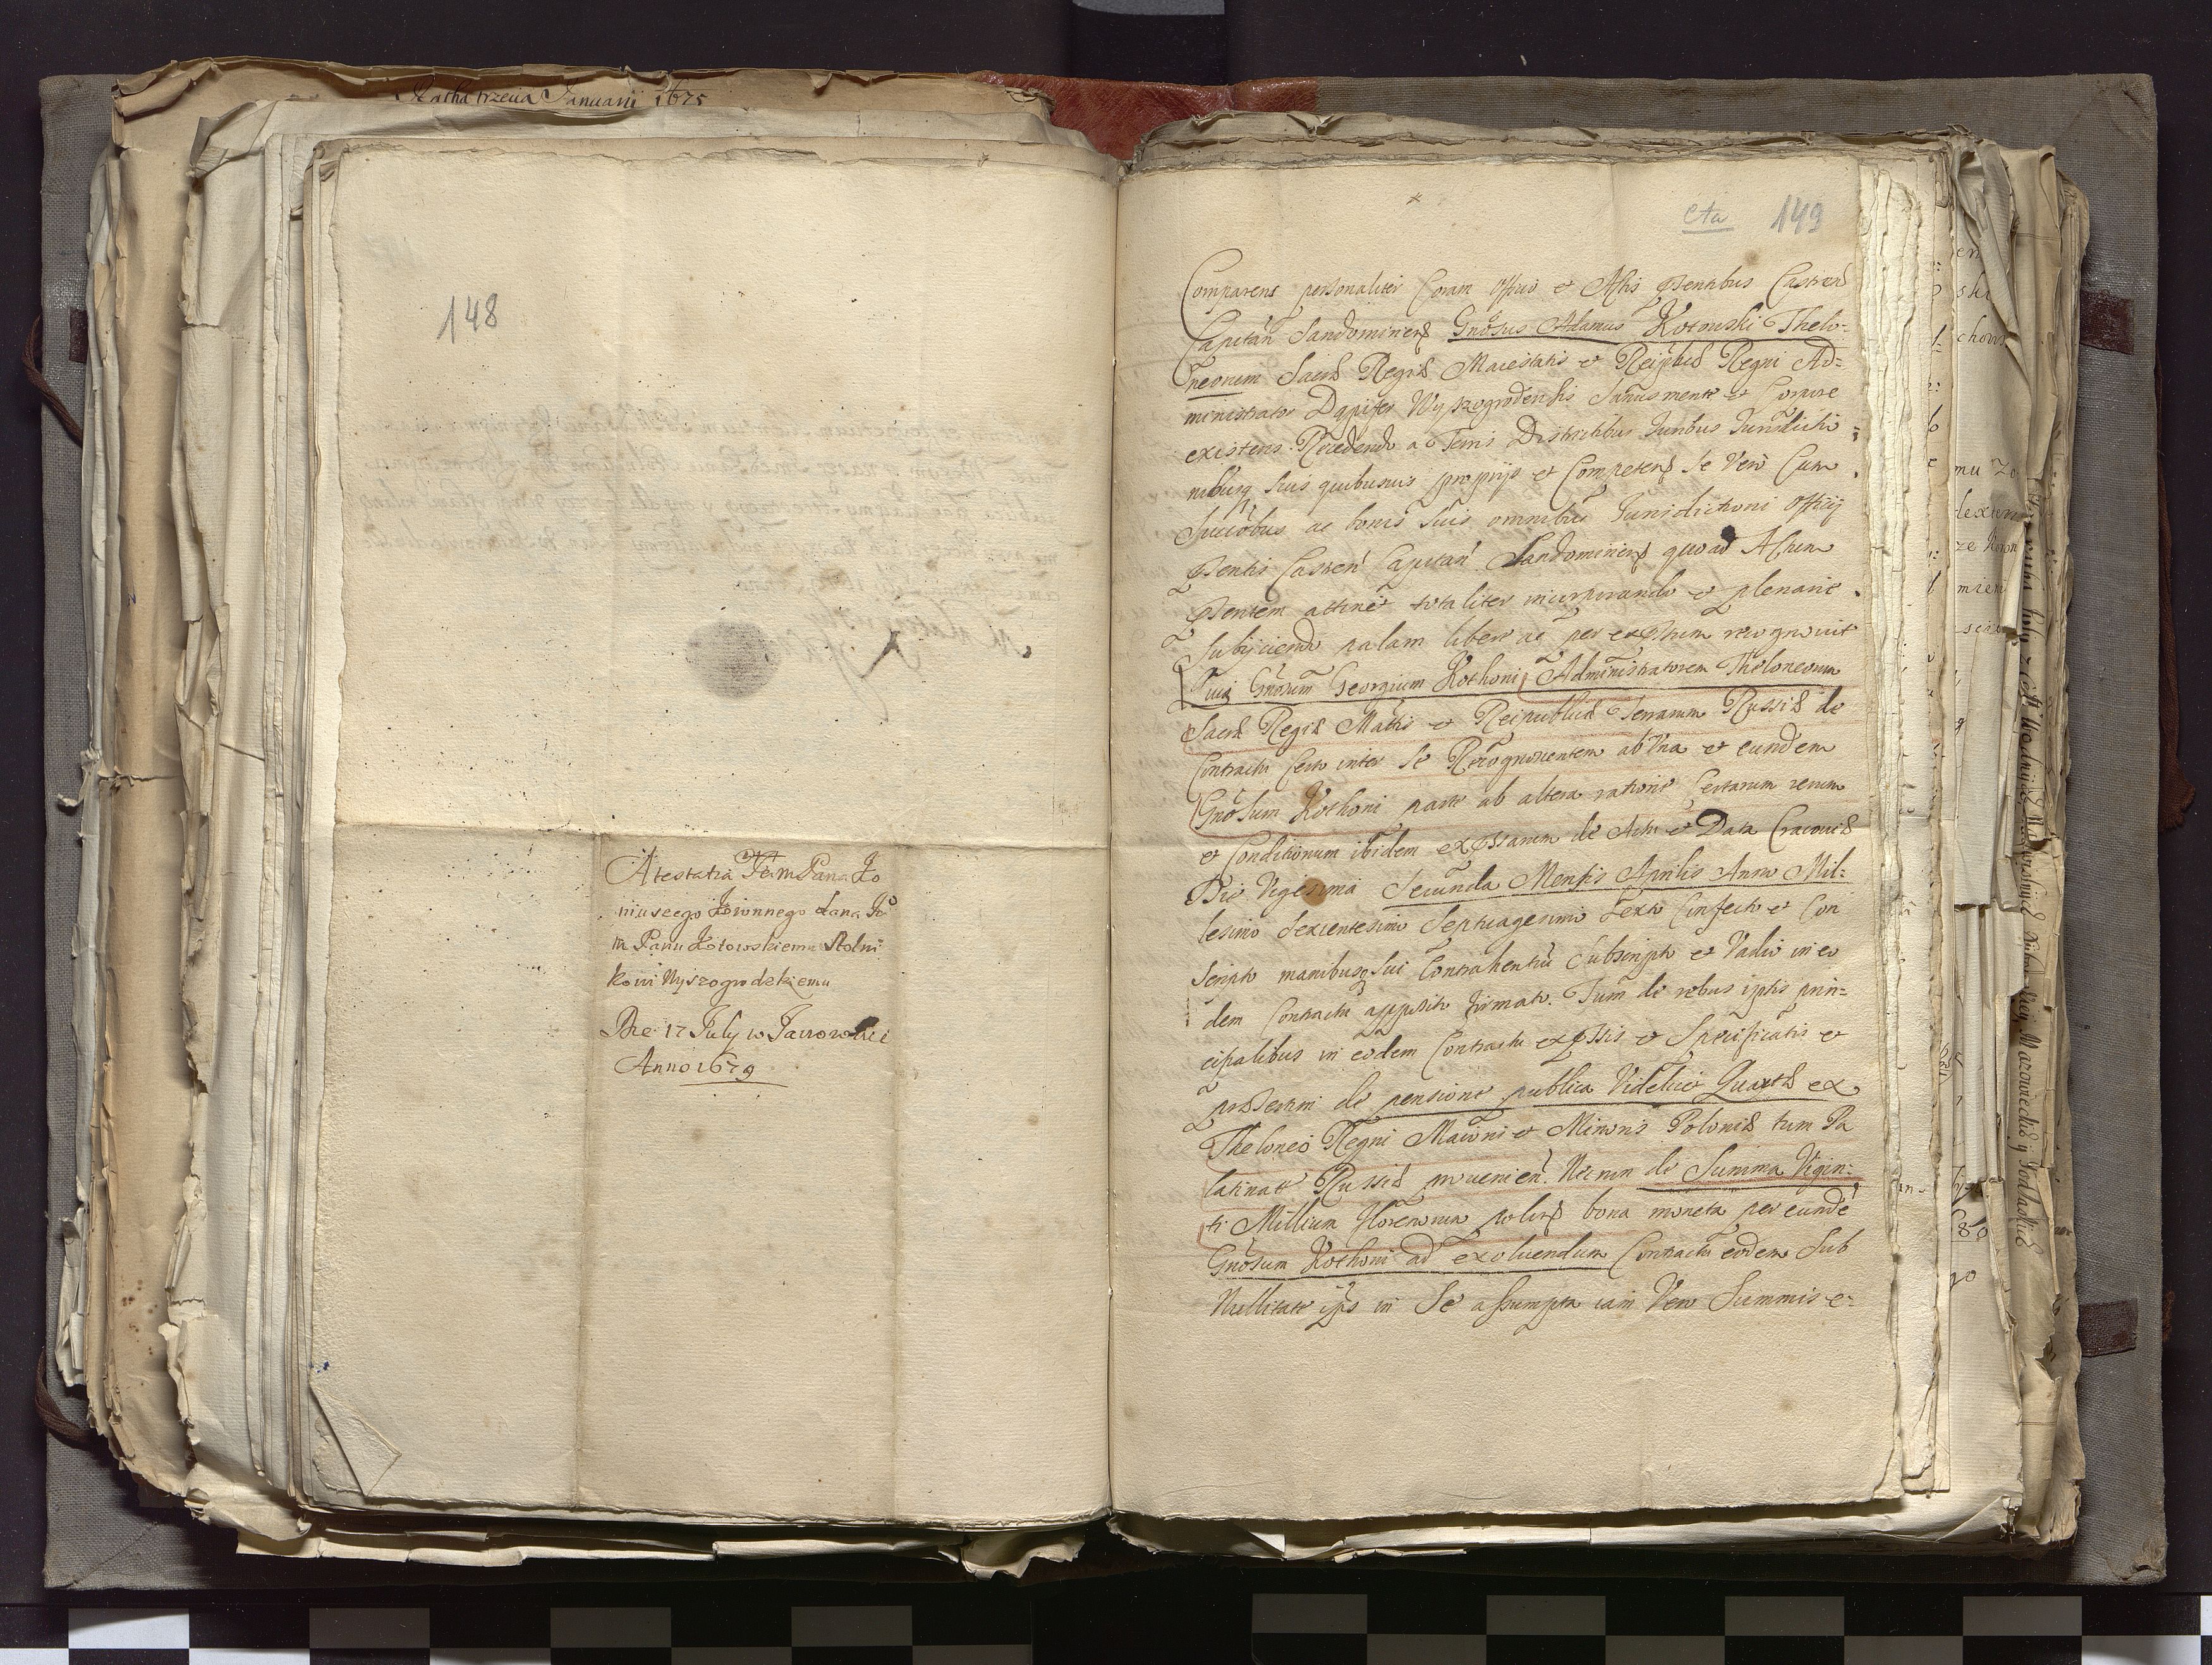 Ratha trzecia Januarii 1675
148
Atestatia JeMPana Ko
niuszego Koronnego dana Je
m Panu Kotowskiemu Stolni
kowi Wyszogrodzkiemu
Die 17 July w Jaworowie
Anno 1679
Cta 149
Comparens personaliter Coram Officio et Actis pñtibus Castren
Capitan Sandomirien Gnosus Adamus Kotowski Thelo=
neorum Sacræ Regiæ Maiestatis et Reipblicæ Regni Ad=
ministrator Dapifer Wyszogrodensis Sanus mente et Corpore
existens. Recedendo a Terris Districtibus Iuribus Iurisdictio=
nibusq suis quibusuis proprijs et Competen Se Vero Cum
Succõbus ac bonis Suis omnibus Iurisdictioni Officij
pñtis Castren Capitan Sandomirien quo ad Actum
pñtem attinet totaliter incorporando et plenarie
Subijciendo palam libere ac per expssum recognouit
Quia Gnosum Georgium Kothoni Administratorem Theloneorum
Sacræ Regiæ Mattis et Reipublicæ Terrarum Russiæ de
Contractu Certo inter Se Recognoscentem ab Vna et eundem
Gnosum Kothoni parte ab altera ratione Certarum rerum
et Conditionum ibidem expssarum de Actu et Data Cracouiæ
Die Vigesima Secunda Mensis Aprilis Anno Mil=
lesimo Sexcentesimo Septuagesimo Sexto Confecto et Con
scripto manibusq Sui Contrahentiũ Subscripto et Vadio in eo
dem Contractu apposito firmato. Tum de rebus ipsis prin=
cipalibus in eodem Contractu expssis et Specificatis et
præsertim de pensione publica Videlicet Quartæ ex
Theloneo Regni Maioris et Minoris Poloniæ tum Pa
latinatt Russiæ prouenien. Necnon de Summa Vigin=
ti Millium Florenorum polon bona moneta per eundẽ
Gnosum Kothoni ad exoluendum Contractu eodem Sub
Nullitate ips in Se assumpta iam Vero Summis e=